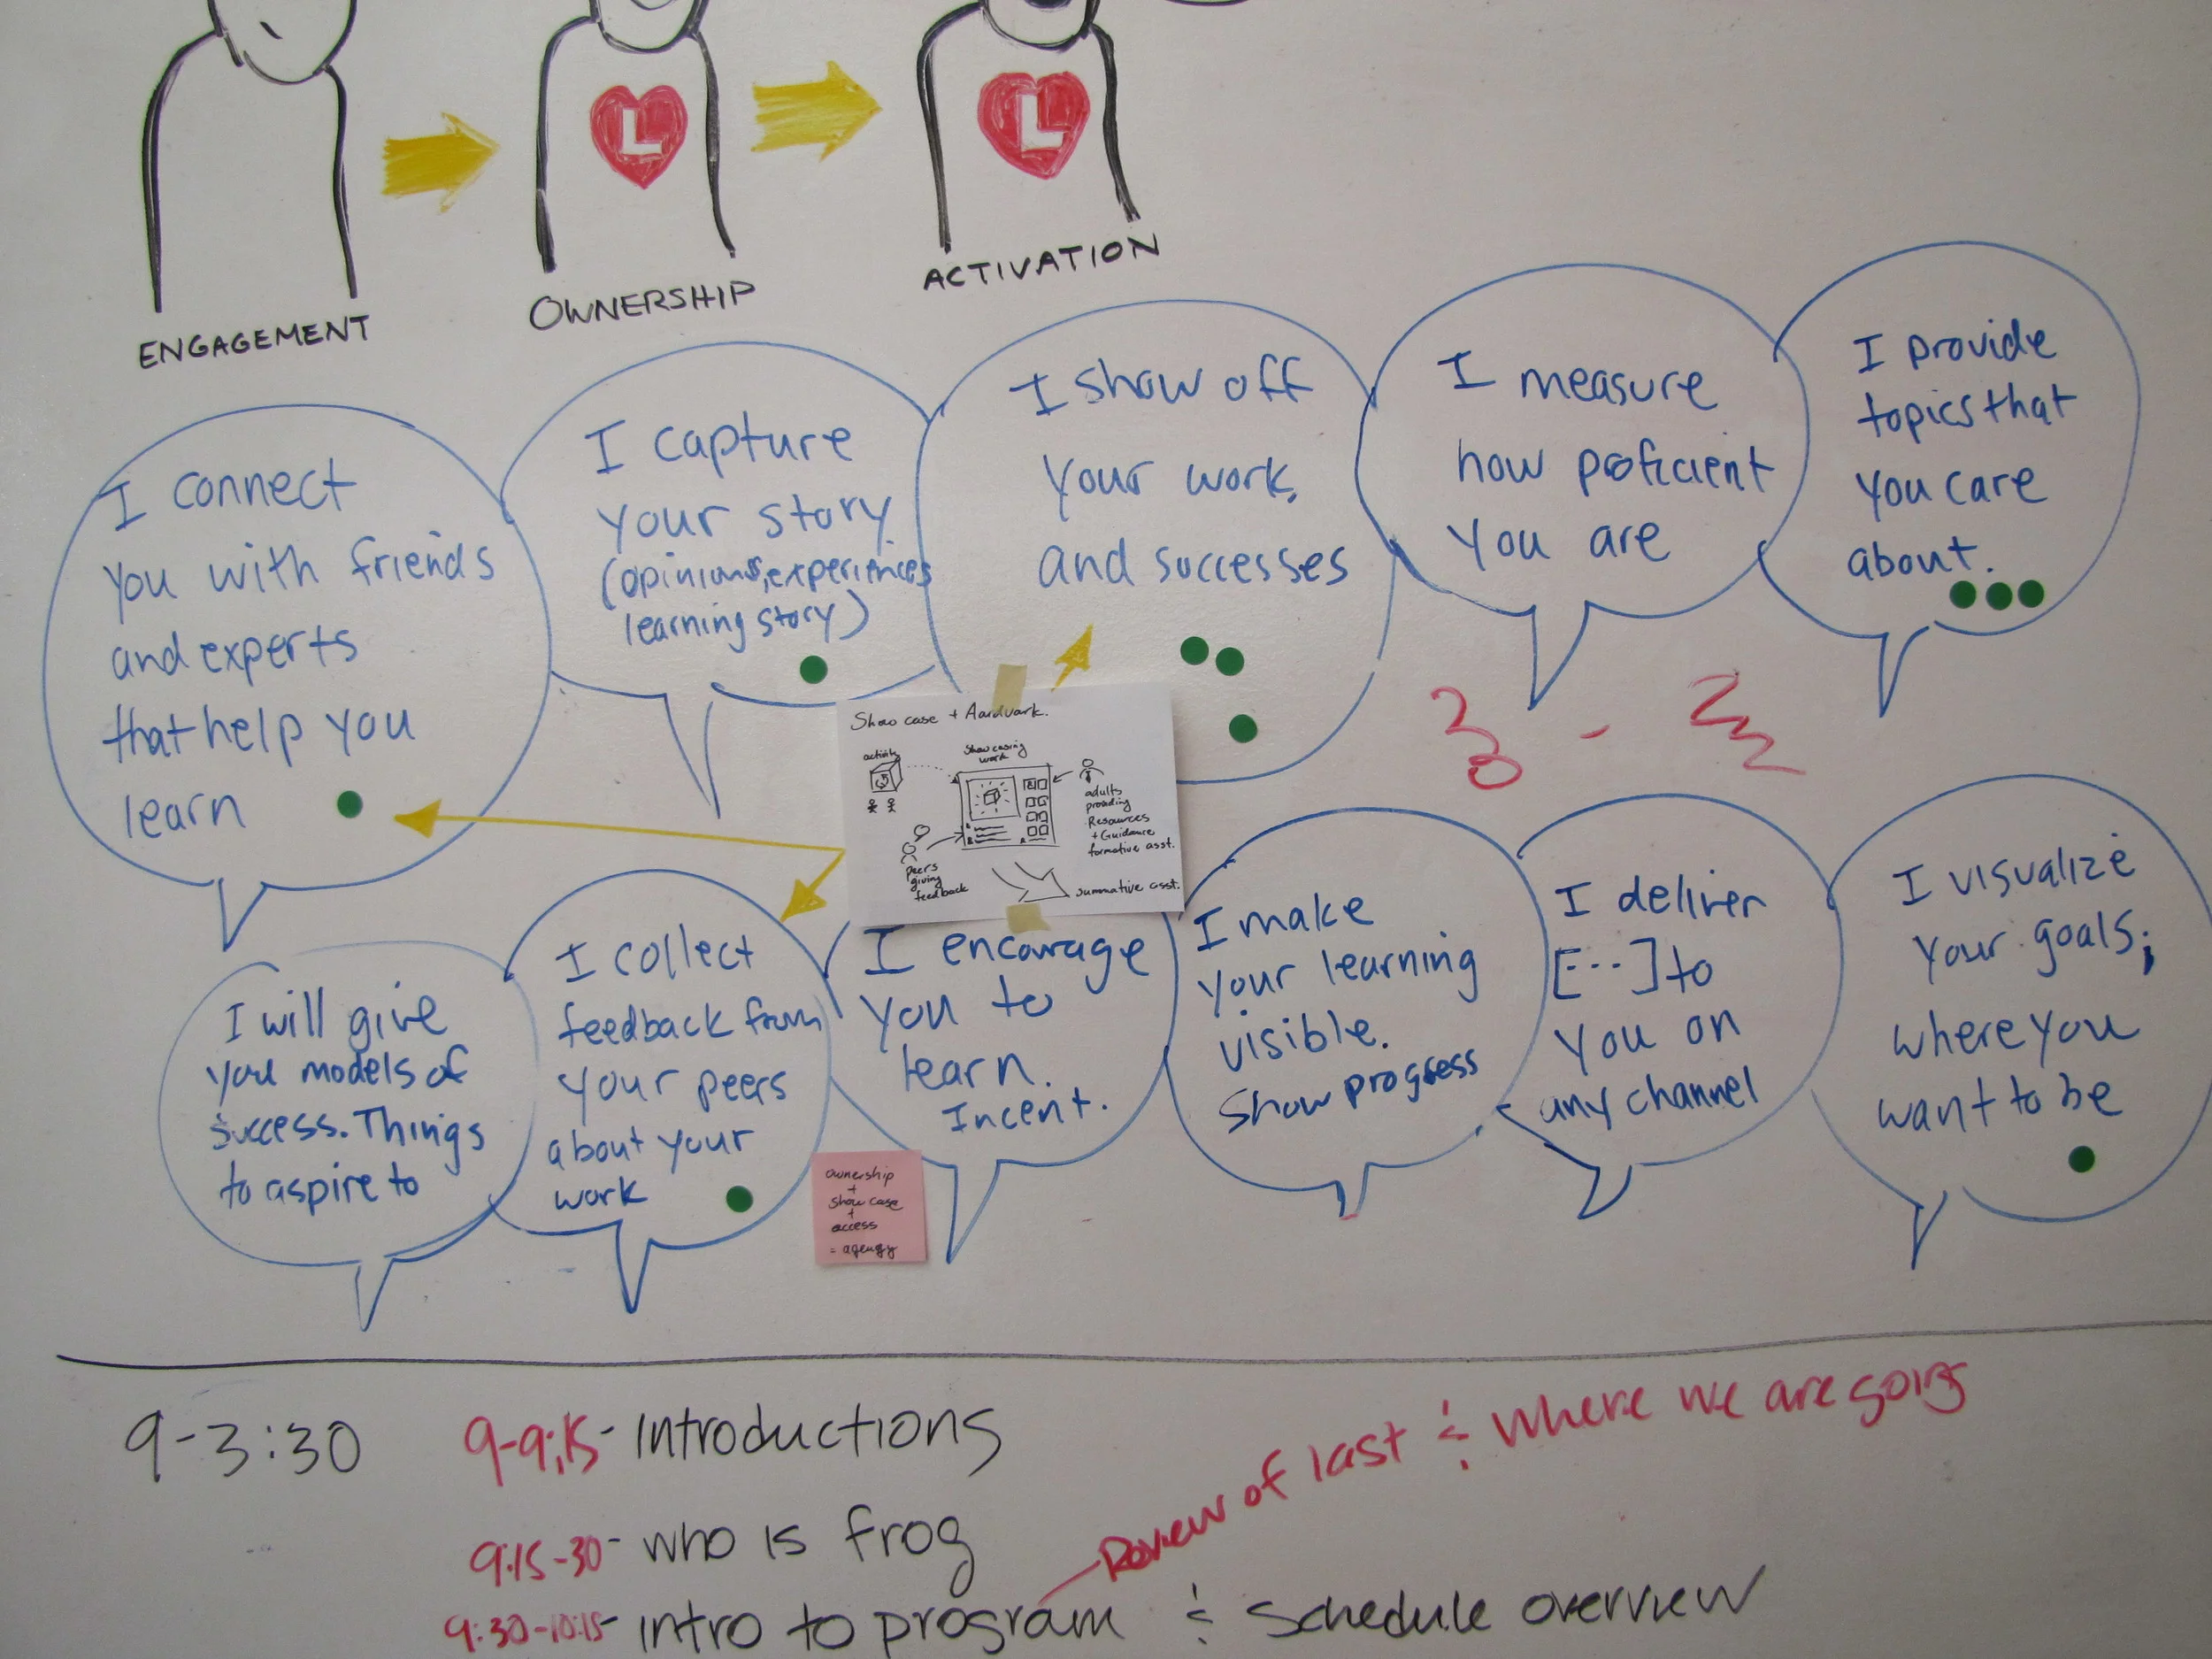 L
L
ENGAGEMENT
OWNERSHIP
ACTIVATION
I connect
you with friends
and experts
that help you
learn
I capture
your story
(opinions, experiences
learning story)
I show off
your work,
and successes
I measure
how proficient
you are
I provide
topics that
you care
about.
Show case + Aardvark.
activity
showcasing
work
adults
providing
Resources
+ Guidance
formative asst.
peers
giving
feedback
summative asst.
I will give
you models of
success. Things
to aspire to
I collect
feedback from
your peers
about your
work
I encourage
you to
learn.
Incent.
I make
your learning
visible.
Show progress
I deliver
[...] to
you on
any channel
I visualize
your goals;
where you
want to be
ownership
+
show case
+
access
= agency
9-3:30
9-9:15- Introductions
9:15-30- who is frog
Review of last & where we are going
9:30-10:15- intro to program & schedule overview